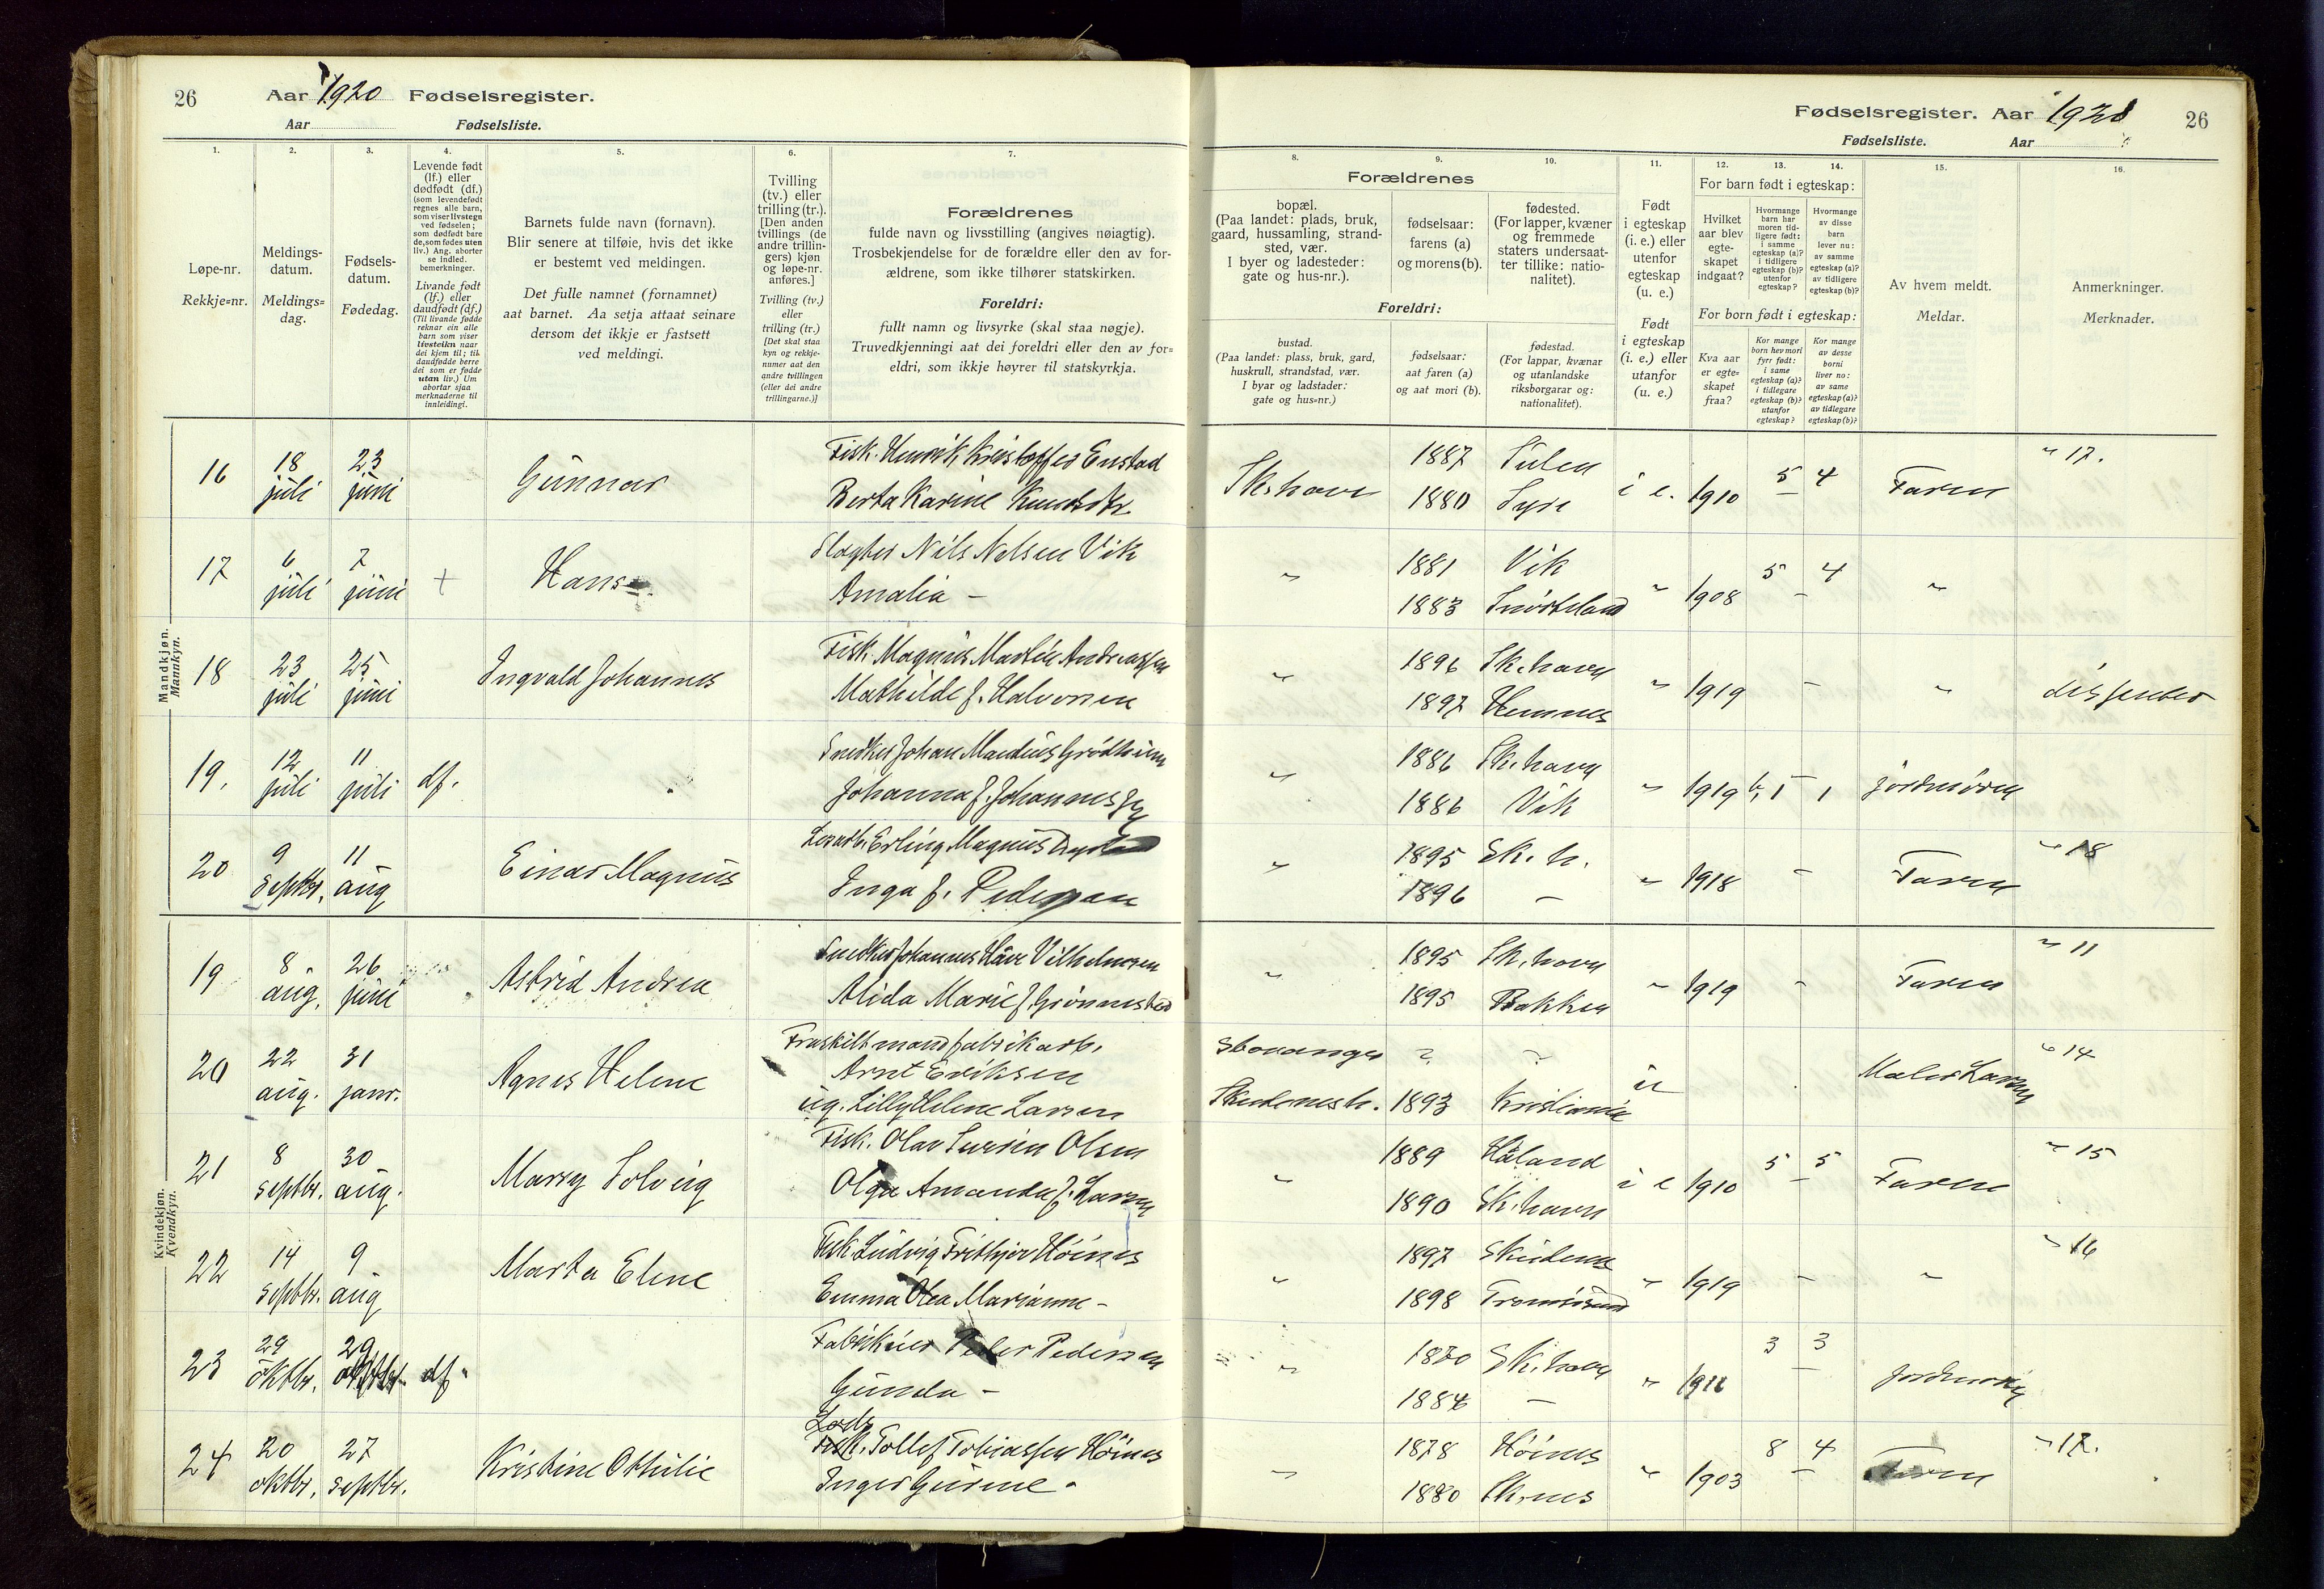 26
Aar 1920 Fødselsregister.
Aar Fødselsliste.
Fødselsregister. Aar 1920
Fødselsliste. Aar
26
1. 2. 3. 4. 5. 6. 7.
8. 9. 10. 11. 12. 13. 14. 15. 16.
Løpe-nr.
Rekkje=nr.
Meldings-
datum.
Meldings=
dag.
Fødsels-
datum.
Fødedag.
Levende født
(lf.) eller
dødfødt (df.)
(som levendefødt
regnes alle barn,
som viser livstegn
ved fødselen;
som dødfødt bare
de, som fødes uten
liv.) Ang. aborter
se indled.
bemerkninger.
Livande født
(lf.) eller
daudfødt (df.)
(Til livande fødde
reknar ein alle
barn som viser
livsteikn naar
dei kjem til; til
daudfødde berre
dei som er fødde
utan liv.) Um
abortar sjaa
merknaderne til
innleidingi.
Barnets fulde navn (fornavn).
Blir senere at tilføie, hvis det ikke
er bestemt ved meldingen.
Det fulle namnet (fornamnet)
aat barnet. Aa setja attaat seinare
dersom det ikkje er fastsett
ved meldingi.
Tvilling
(tv.) eller
trilling (tr.).
[Den anden
tvillings (de
andre trillin-
gers) kjøn
og løpe-nr.
anføres.]
Tvilling (tv.)
eller
trilling (tr.)
[Det skal staa
kyn og rekkje-
numer aat den
andre tvillingen
(eller dei andre
trillingarne.)]
Forældrenes
fulde navn og livsstilling (angives nøiagtig).
Trosbekjendelse for de forældre eller den av for-
ældrene, som ikke tilhører statskirken.
Foreldri:
fullt namn og livsyrke (skal staa nøgje).
Truvedkjenningi aat dei foreldri eller den av for=
eldri, som ikkje høyrer til statskyrkja.
Forældrenes
bopæl.
(Paa landet: plads, bruk,
gaard, hussamling, strand-
sted, vær.
I byer og ladesteder:
gate og hus-nr.).
fødselsaar:
farens (a)
og morens (b).
fødested.
(For lapper, kvæner
og fremmede
staters undersaat-
ter tillike: natio-
nalitet).
Foreldri:
bustad.
(Paa landet: plass, bruk, gard,
huskrull, strandstad, vær.
I byar og ladstader:
gate og hus=nr.)
fødselsaar:
aat faren (a)
og aat mori (b).
fødestad.
(For lappar, kvænar
og utanlandske
riksborgarar og:
nationalitet).
Født
i egteskap
(i. e.) eller
utenfor
egteskap
(u. e.)
Født
i egteskap
(i. e.) eller
utanfor
(u. e.)
For barn født i egteskap:
Hvilket
aar blev
egte-
skapet
indgaat?
Hvormange
barn har
moren tid-
ligere født:
i samme
egteskap (a)?
i tidligere
egteskap (b)?
utenfor
egteskap?
Hvormange
av disse
barn
lever nu:
av samme
egteskap (a)?
av tidligere
egteskap (b)?
For born født i egteskap:
Kva aar
er egte=
skapet
fraa?
Kor mange
born hev mori
fyrr født:
i same
egteskap (a)?
i tidlegare
egteskap (b)?
utanfor
egteskap?
Kor mange
av desse
borni
liver no:
av same
egteskap (a)?
av tidlegare
egteskap (b)?
Av hvem meldt.
Meldar.
Anmerkninger.
Merknader.
Mandkjøn.
Mannkyn.
16 18 juli 23 juni Gunnar Fisk. Henrik Kristoffer Enstad
Berta Karine Knudsdtr. Sk.havn 1887 Sulen 1880 Syre i e. 1910 5 4 Faren " 17.
17 6 juli 7 juni + Hans Slagter Nils Nilsen Vik
Amalia – " 1881 Vik 1883 " 1908 5 4 "
18 23 juli 25 juni Ingvald Johannes Fisk. Magnus Martin Andreassen
Mathilde f. Halvorsen " 1896 Sk.havn 1897 Hemnes " 1919 – " dissenter
19. 12 juli 11 juli df. Snedker Johan Mardius Grødheim
Johanna f. Johannessen " 1886 Sk.havn 1886 Vik " 1919 1 1 jordmoren
20 9 septbr. 11 aug Einar Magnus Erling Magnus
Inga f. Pedersen " 1895 Sk. h. 1896 – " 1918 – Faren " 18
Kvindekjøn.
Kvendkyn.
19 8 aug. 26 juni Astrid Andrea Snedker Johannes Håve Vilhelmsen
Alida Marie f. Grønnestad " 1895 Sk.havn 1895 Bakken " 1919 – Faren " 11
20 22 aug. 31 janr. Agnes Helene Fraskilt mand fabrikarb.
Arnt Eriksen
ug. Lilly Helene Larsen Stavanger ? ? Skudenesh. 1893 Kristiania u Maler Larsen " 14
21 8 septbr. 30 aug. Marry Solveig Fisk. Olav Olsen
Olga Amanda f. Larsen " 1889 Håland 1890 Sk.havn i e 1910 5 5 Faren " 15
22 14 septbr. 9 aug Marta Elene Fisk Ludvig Frithjov Høines
Emma Olea Marianne – " 1897 Skudenes 1898 Tromøsund " 1919 – " " 16
23 29 oktbr. 29 oktbr. df. Fabrikeier Peder Pedersen
Gunda – " 1880 Sk.havn 1884 – " 1911 3 3 jordmoren
24 20 oktbr. 27 septbr. Kristine Othilie Lods
Fisk. Tollef Tobiassen Høines
Inger Gurine – " 1878 Høines 1880 Sk.nes " 1903 8 4 Faren " 17.